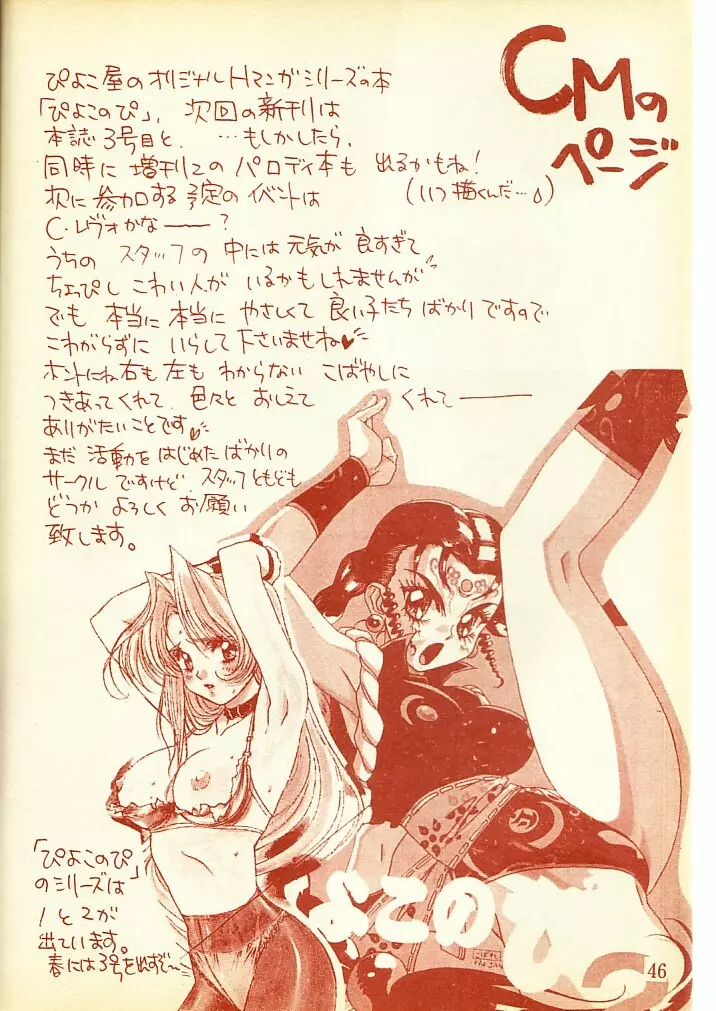 CMの
ページ
ぴよこ屋のオリジナルHマンガシリーズの本
「ぴよこのぴ」、次回の新刊は
本誌3号目と、…もしかしたら、
同時に増刊2のパロディ本も出るかもね!
(いつ描くんだ…)
次に参加する予定のイベントは
C・レヴォかな——?
うちのスタッフの中には元気が良すぎて
ちょっぴしこわい人がいるかもしれませんが
でも本当に本当にやさしくて良い子たちばかりですので
こわがらずにいらして下さいませね♥
ホントにね右も左もわからないこばやしに
つきあってくれて、色々とおしえてくれて——
ありがたいことです♥
まだ活動をはじめたばかりの
サークルですけど、スタッフともども
どうかよろしくお願い
致します。
「ぴよこのぴ」
のシリーズは
1と2が
出ています。
春には3号を出すぞ〜
よこの
46